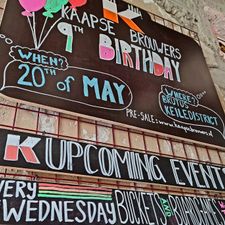 K
KAAPSE BROUWERS
9th BIRTHDAY
WHEN?
20TH OF MAY
WHERE?
BRUTUS
KEILEDISTRICT
PRE-SALE: www.kaapsebrouwers.nl
K UPCOMING EVENTS
EVERY
WEDNESDAY BUCKETS AND BOARDGAMES